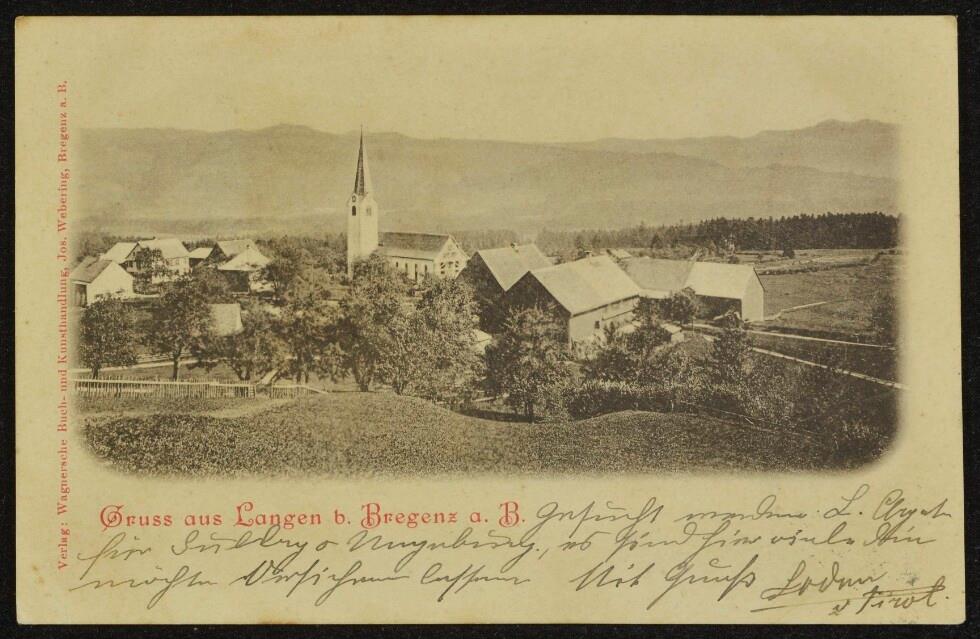 Verlag: Wagnersche Buch- und Kunsthandlung, Jos. Webering, Bregenz a. B.
Gruss aus Langen b. Bregenz a. B.
Gesucht werden
für Umgebung, es sind hier viele
möchte Versichern lassen Mit Gruß
v Tirol.